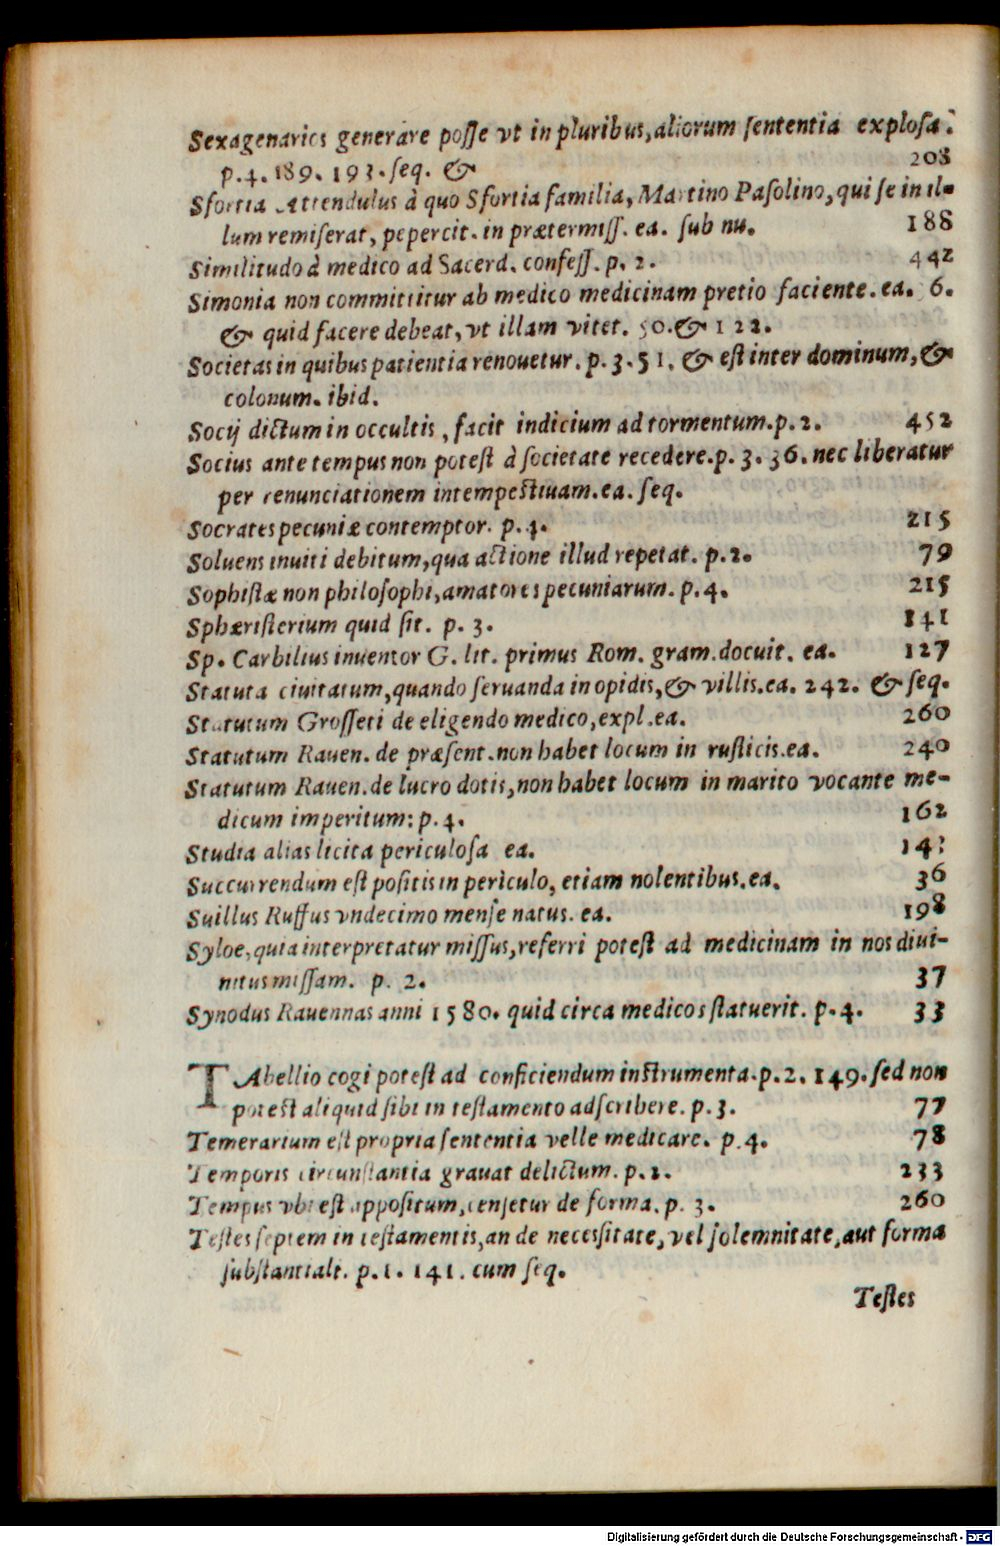 Sexagenarios generare posse vt in pluribus, aliorum sententia explosa.
p.4. 189. 193. seq. & 208
Sfortia Attendulus à quo Sfortia familia, Martino Pasolino, qui se in il-
lum remiserat, pepercit. in prætermiss. ea. sub nu. 188
Similitudo à medico ad Sacerd. confess. p. 2. 442
Simonia non committitur ab medico medicinam pretio faciente. ea. 6.
& quid facere debeat, vt illam vitet. 50. & 122.
Societas in quibus patientia renouetur. p. 3. 51. & est inter dominum, &
colonum. ibid.
Socij dictum in occultis, facit indicium ad tormentum. p. 2. 452
Socius ante tempus non potest à societate recedere. p. 3. 36. nec liberatur
per renunciationem intempestiuam. ea. seq.
Socrates pecuniæ contemptor. p. 4. 215
Soluens inuiti debitum, qua actione illud repetat. p. 2. 79
Sophistæ non philosophi, amatores pecuniarum. p. 4. 215
Sphæristerium quid sit. p. 3. 141
Sp. Carbilius inuentor G. lit. primus Rom. gram. docuit. ea. 127
Statuta ciuitatum, quando seruanda in opidis, & villis. ea. 242. & seq.
Statutum Grosseti de eligendo medico, expl. ea. 260
Statutum Rauen. de præsent. non habet locum in rusticis. ea. 240
Statutum Rauen. de lucro dotis, non habet locum in marito vocante me-
dicum imperitum: p. 4. 162
Studia alias licita periculosa ea.
Succurrendum est positis in periculo, etiam nolentibus. ea. 36
Suillus Ruffus vndecimo mense natus. ea. 198
Syloe, quia interpretatur missus, referri potest ad medicinam in nos diui-
nitus missam. p. 2. 37
Synodus Rauennas anni 1580. quid circa medicos statuerit. p. 4. 33
TAbellio cogi potest ad conficiendum instrumenta. p. 2. 149. sed non
potest aliquid sibi in testamento adscribere. p. 3. 77
Temerarium est propria sententia velle medicare. p. 4. 78
Temporis circunstantia grauat delictum. p. 1. 233
Tempus vbi est appositum, censetur de forma. p. 3. 260
Testes septem in testamentis, an de necessitate, vel solemnitate, aut forma
substantiali. p. 1. 141. cum seq.
Testes
Digitalisierung gefördert durch die Deutsche Forschungsgemeinschaft - DFG